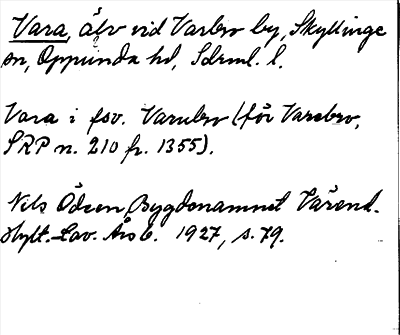 Vara, älv vid Varbro by, Skyllinge
sn, Oppunda hd, Sdrml. l.
Vara i fsv. Varubro (för Varabro,
SRP n. 210 fr. 1355).
Nils Ödeen, Bygdenamnet Värend.
Hylt.-Cav. Årsb. 1927, s. 79.